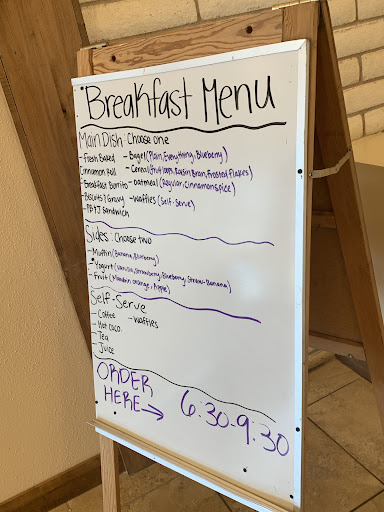 Breakfast Menu
Main Dish: Choose one
- Fresh Baked Cinnamon Roll
- Breakfast Burrito
- Biscuits & Gravy
- PB & J Sandwich
- Bagel (Plain, Everything, Blueberry)
- Cereal (fruit loops, Raisin Bran, Frosted Flakes)
- oatmeal (Regular, Cinnamon spice)
- waffles (Self-Serve)
Sides: Choose two
- Muffin (Banana, Blueberry)
- Yogurt (Vanilla, Strawberry, Blueberry, Straw-Banana)
- Fruit (Mandrin orange, Apple)
Self-Serve
- Coffee
- Hot coco
- Tea
- Juice
- Waffles
ORDER
HERE → 6:30-9:30